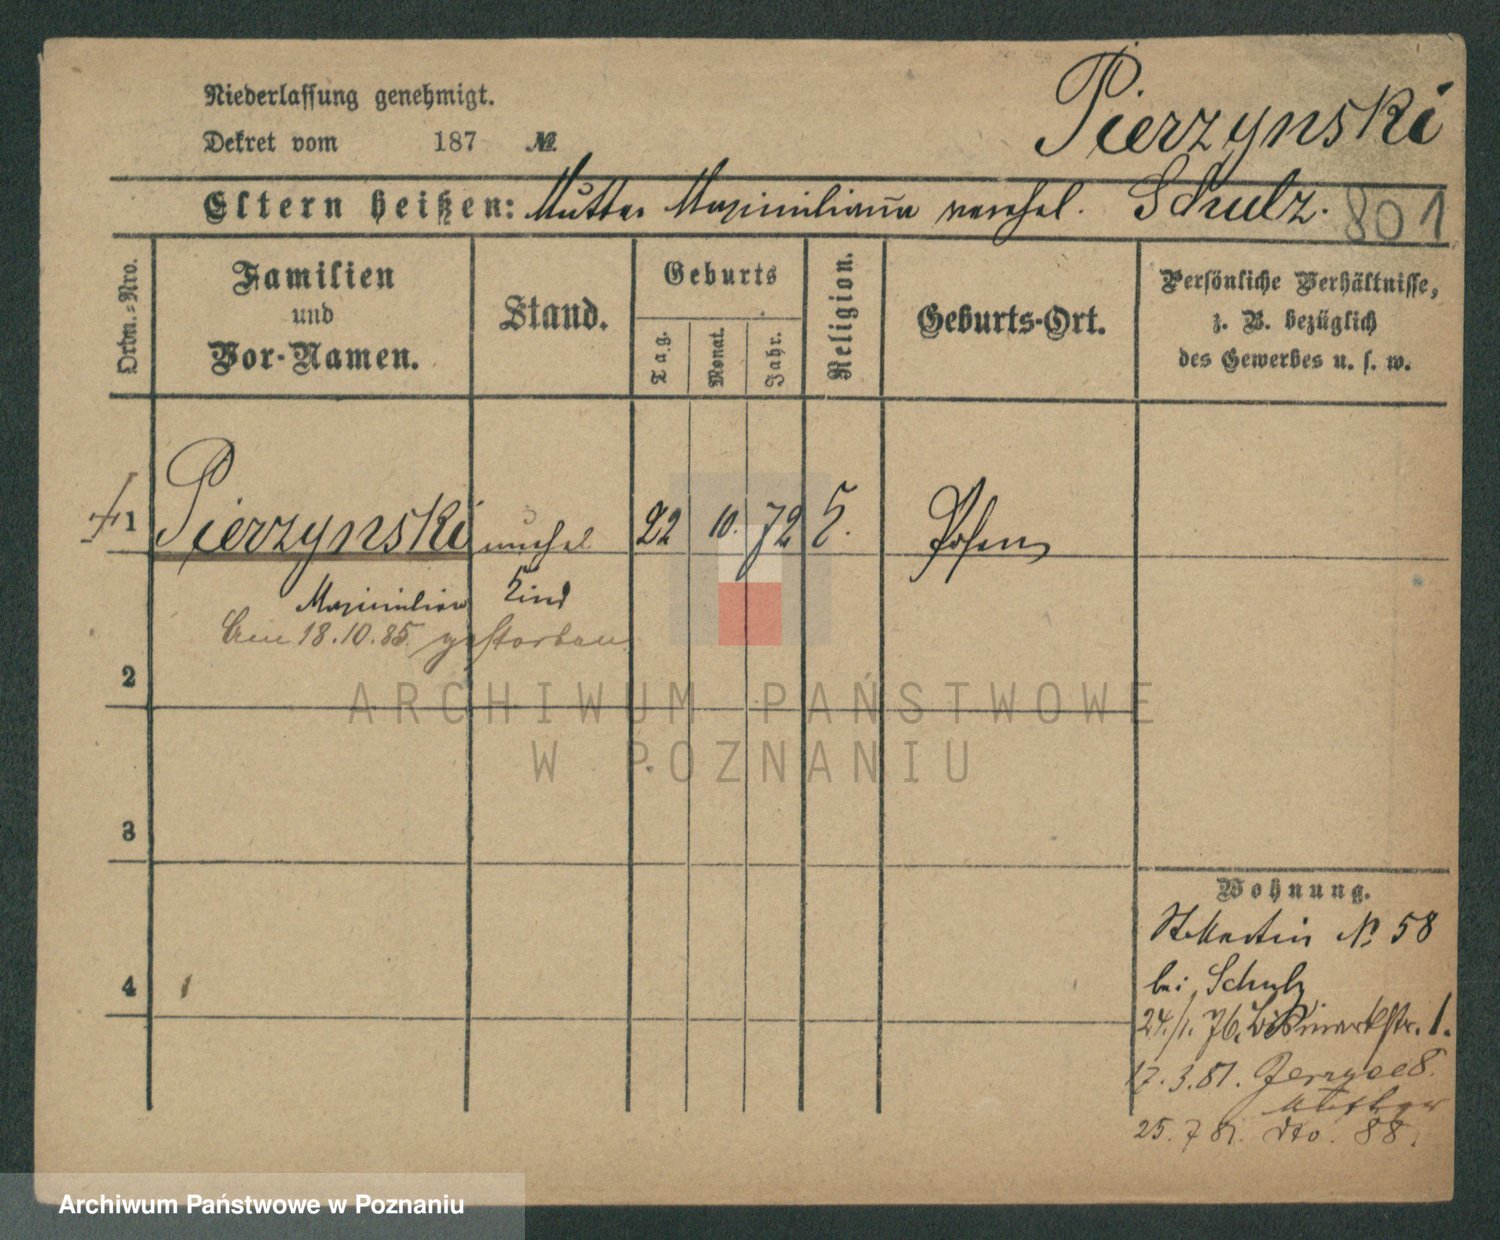 Niederlassung genehmigt.
Dekret vom 187 №
Pierzynski
Eltern heißen: Mutter Maximiliana verehel. Schulz.
801
Ordn.-Nro.
Familien
und
Vor-Namen.
Stand.
Geburts
Tag.
Monat.
Jahr.
Religion.
Geburts-Ort.
Persönliche Verhältnisse,
z. B. bezüglich
des Gewerbes u. s. w.
1 Pierzynski unehel 22 10. 72 Posen
Maximilian Kind
18.10.85. gestorben
2
3
4
Wohnung.
St Martin № 58
bei Schulz
24./1. 76. Bismarkstr. 1.
17. 3. 81. Jerzyce 8.
25. 7 81. dto. 88.
ARCHIWUM PAŃSTWOWE
W POZNANIU
Archiwum Państwowe w Poznaniu